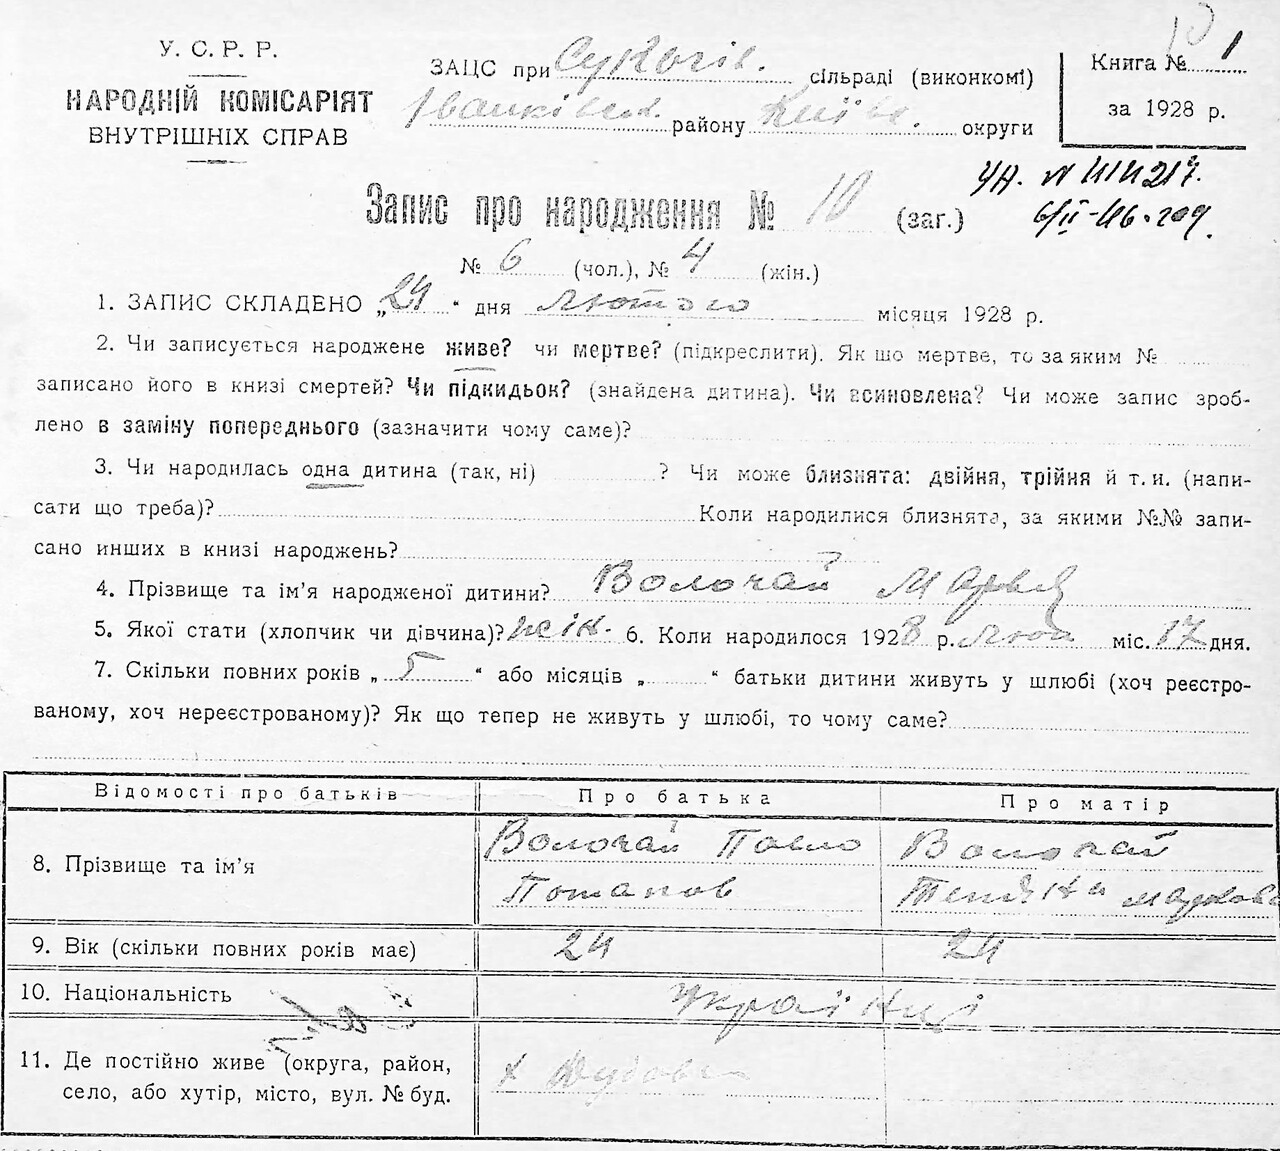 У. С. Р. Р.
НАРОДНІЙ КОМІСАРІЯТ
ВНУТРІШНІХ СПРАВ
ЗАЦС при сільраді (виконкомі)
району Київс. округи
Книга № 1
за 1928 р.
Запис про народження № 10 (заг.)
№ 6 (чол.), № 4 (жін.)
1. ЗАПИС СКЛАДЕНО „24“ дня лютого місяця 1928 р.
2. Чи записується народжене живе? чи мертве? (підкреслити). Як що мертве, то за яким №
записано його в книзі смертей? Чи підкидьок? (знайдена дитина). Чи всиновлена? Чи може запис зроб-
лено в заміну попереднього (зазначити чому саме)?
3. Чи народилась одна дитина (так, ні) ? Чи може близнята: двійня, трійня й т. и. (напи-
сати що треба)? Коли народилися близнята, за якими №№ запи-
сано инших в книзі народжень?
4. Прізвище та ім’я народженої дитини? Волочай Марья
5. Якої стати (хлопчик чи дівчина)? жін. 6. Коли народилося 1928 р. міс. 17 дня.
7. Скільки повних років „ 5 “ або місяців „ “ батьки дитини живуть у шлюбі (хоч реєстро-
ваному, хоч нереєстрованому)? Як що тепер не живуть у шлюбі, то чому саме?
Відомості про батьків Про батька Про матір
8. Прізвище та ім’я Волочай Павло Потапов Волочай
9. Вік (скільки повних років має) 24 24
10. Національність Українці
11. Де постійно живе (округа, район,
село, або хутір, місто, вул. № буд. х